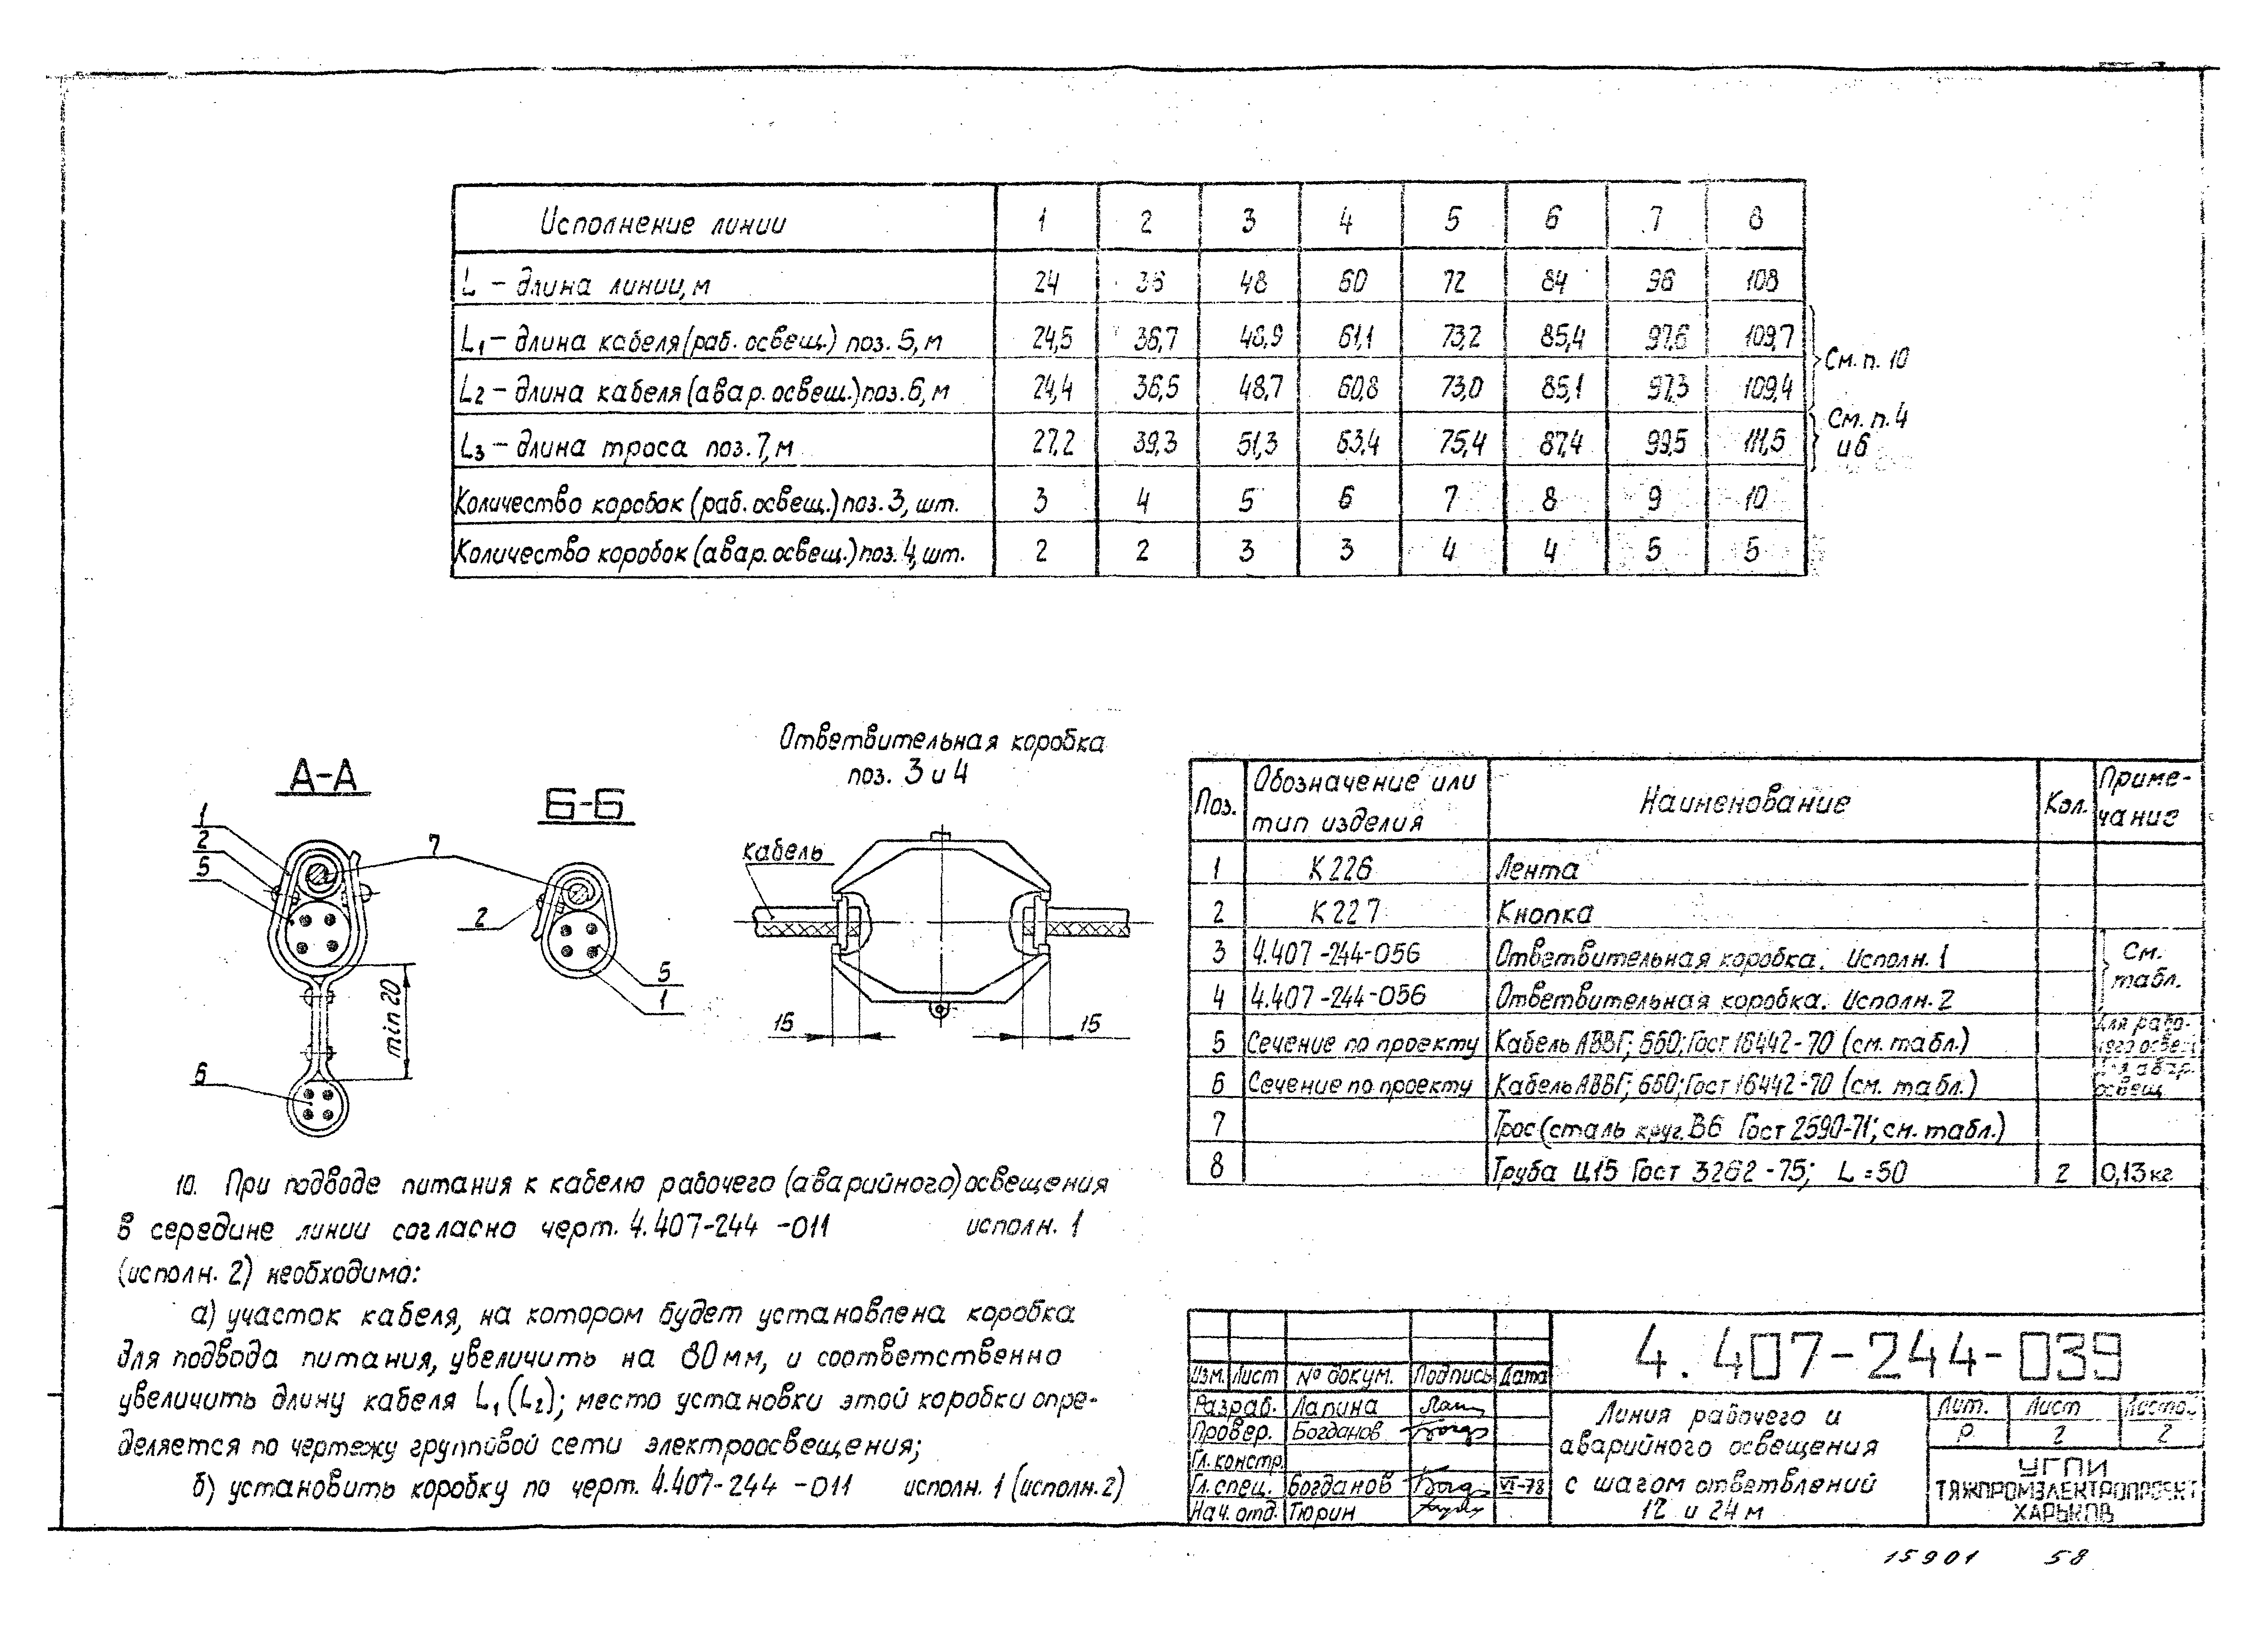 Исполнение линии 1 2 3 4 5 6 7 8
L – длина линии, м 24 36 48 60 72 84 96 108
L1 – длина кабеля (раб. освещ.) поз. 5, м 24,5 36,7 48,9 61,1 73,2 85,4 97,6 109,7
См. п. 10
L2 – длина кабеля (авар. освещ.) поз. 6, м 24,4 36,5 48,7 60,8 73,0 85,1 97,3 109,4
См. п. 4
и 6
L3 – длина троса поз. 7, м 27,2 39,3 51,3 63,4 75,4 87,4 99,5 111,5
Количество коробок (раб. освещ.) поз. 3, шт. 3 4 5 6 7 8 9 10
Количество коробок (авар. освещ.) поз. 4, шт. 2 2 3 3 4 4 5 5
А-А
1
2
5
7
min 20
6
Б-Б
2
5
1
Ответвительная коробка
поз. 3 и 4
кабель
15 15
Поз. Обозначение или тип изделия Наименование Кол. Примечание
1 К 226 Лента
2 К 227 Кнопка
3 4.407-244-056 Ответвительная коробка. Исполн. 1
См. табл.
4 4.407-244-056 Ответвительная коробка. Исполн. 2
5 Сечение по проекту Кабель АВВГ; 660; Гост 16442-70 (см. табл.) Для рабочего освещ.
6 Сечение по проекту Кабель АВВГ; 660; Гост 16442-70 (см. табл.) Для авар. освещ.
7 Трос (сталь круг. В6 Гост 2590-71; см. табл.)
8 Труба Ц15 Гост 3262-75; L=50 2 0,13 кг
10. При подводе питания к кабелю рабочего (аварийного) освещения
в середине линии согласно черт. 4.407-244-011 исполн. 1
(исполн. 2) необходимо:
а) участок кабеля, на котором будет установлена коробка
для подвода питания, увеличить на 80 мм, и соответственно
увеличить длину кабеля L1 (L2); место установки этой коробки опре-
деляется по чертежу групповой сети электроосвещения;
б) установить коробку по черт. 4.407-244-011 исполн. 1 (исполн. 2)
Изм. Лист № докум. Подпись Дата
Разраб. Лапина
Провер. Богданов
Гл. констр.
Гл. спец. Богданов VI-78
Нач. отд. Тюрин
4.407-244-039
Линия рабочего и
аварийного освещения
с шагом ответвлений
12 и 24 м
Лит. Лист Листов
Р 2 2
УГПИ
ТЯЖПРОМЭЛЕКТРОПРОЕКТ
ХАРЬКОВ
15901 58